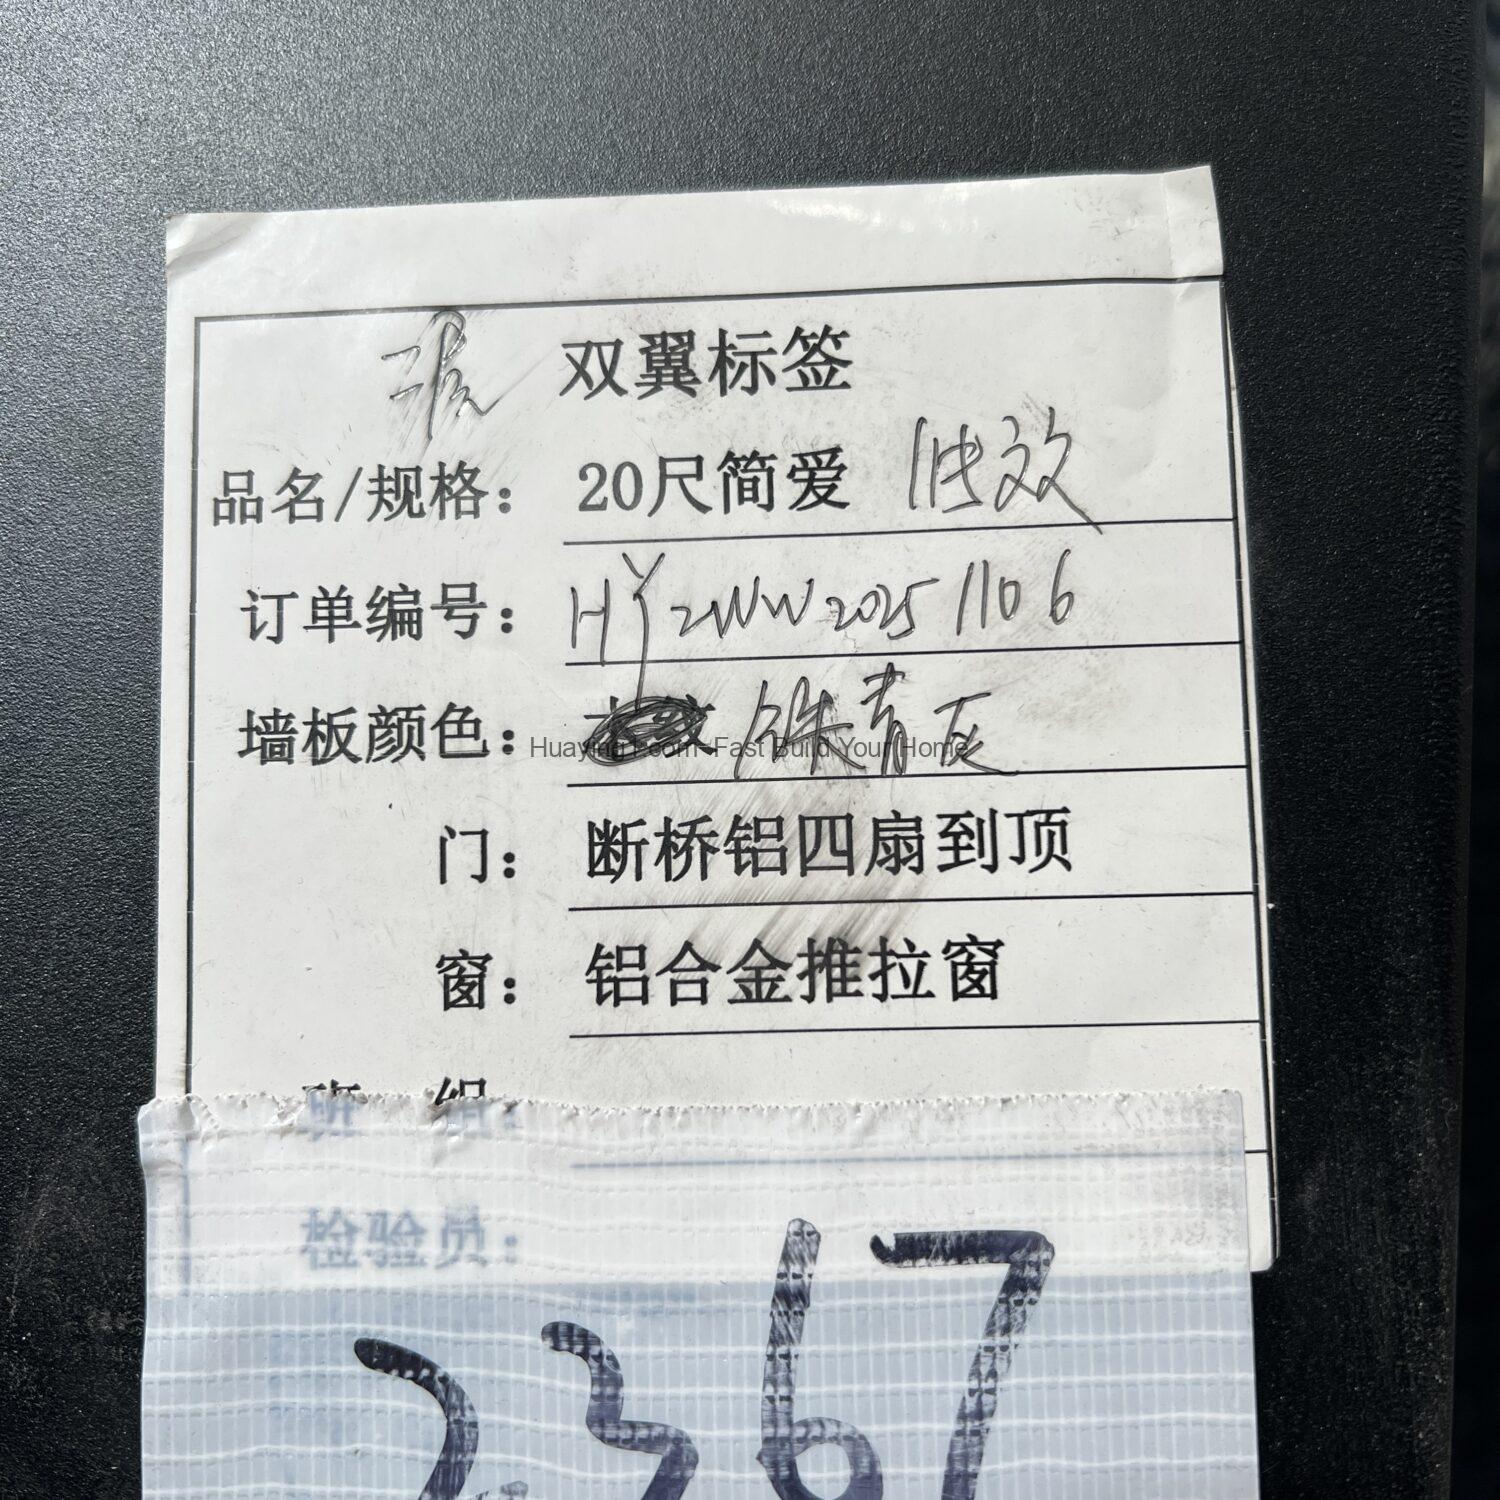 双翼标签
品名/规格：20尺简爱
订单编号：HYZWW20251106
墙板颜色：青灰
Huaying Room--Fast Build Your Home
门：断桥铝四扇到顶
窗：铝合金推拉窗
班 组：
检验员：
2367